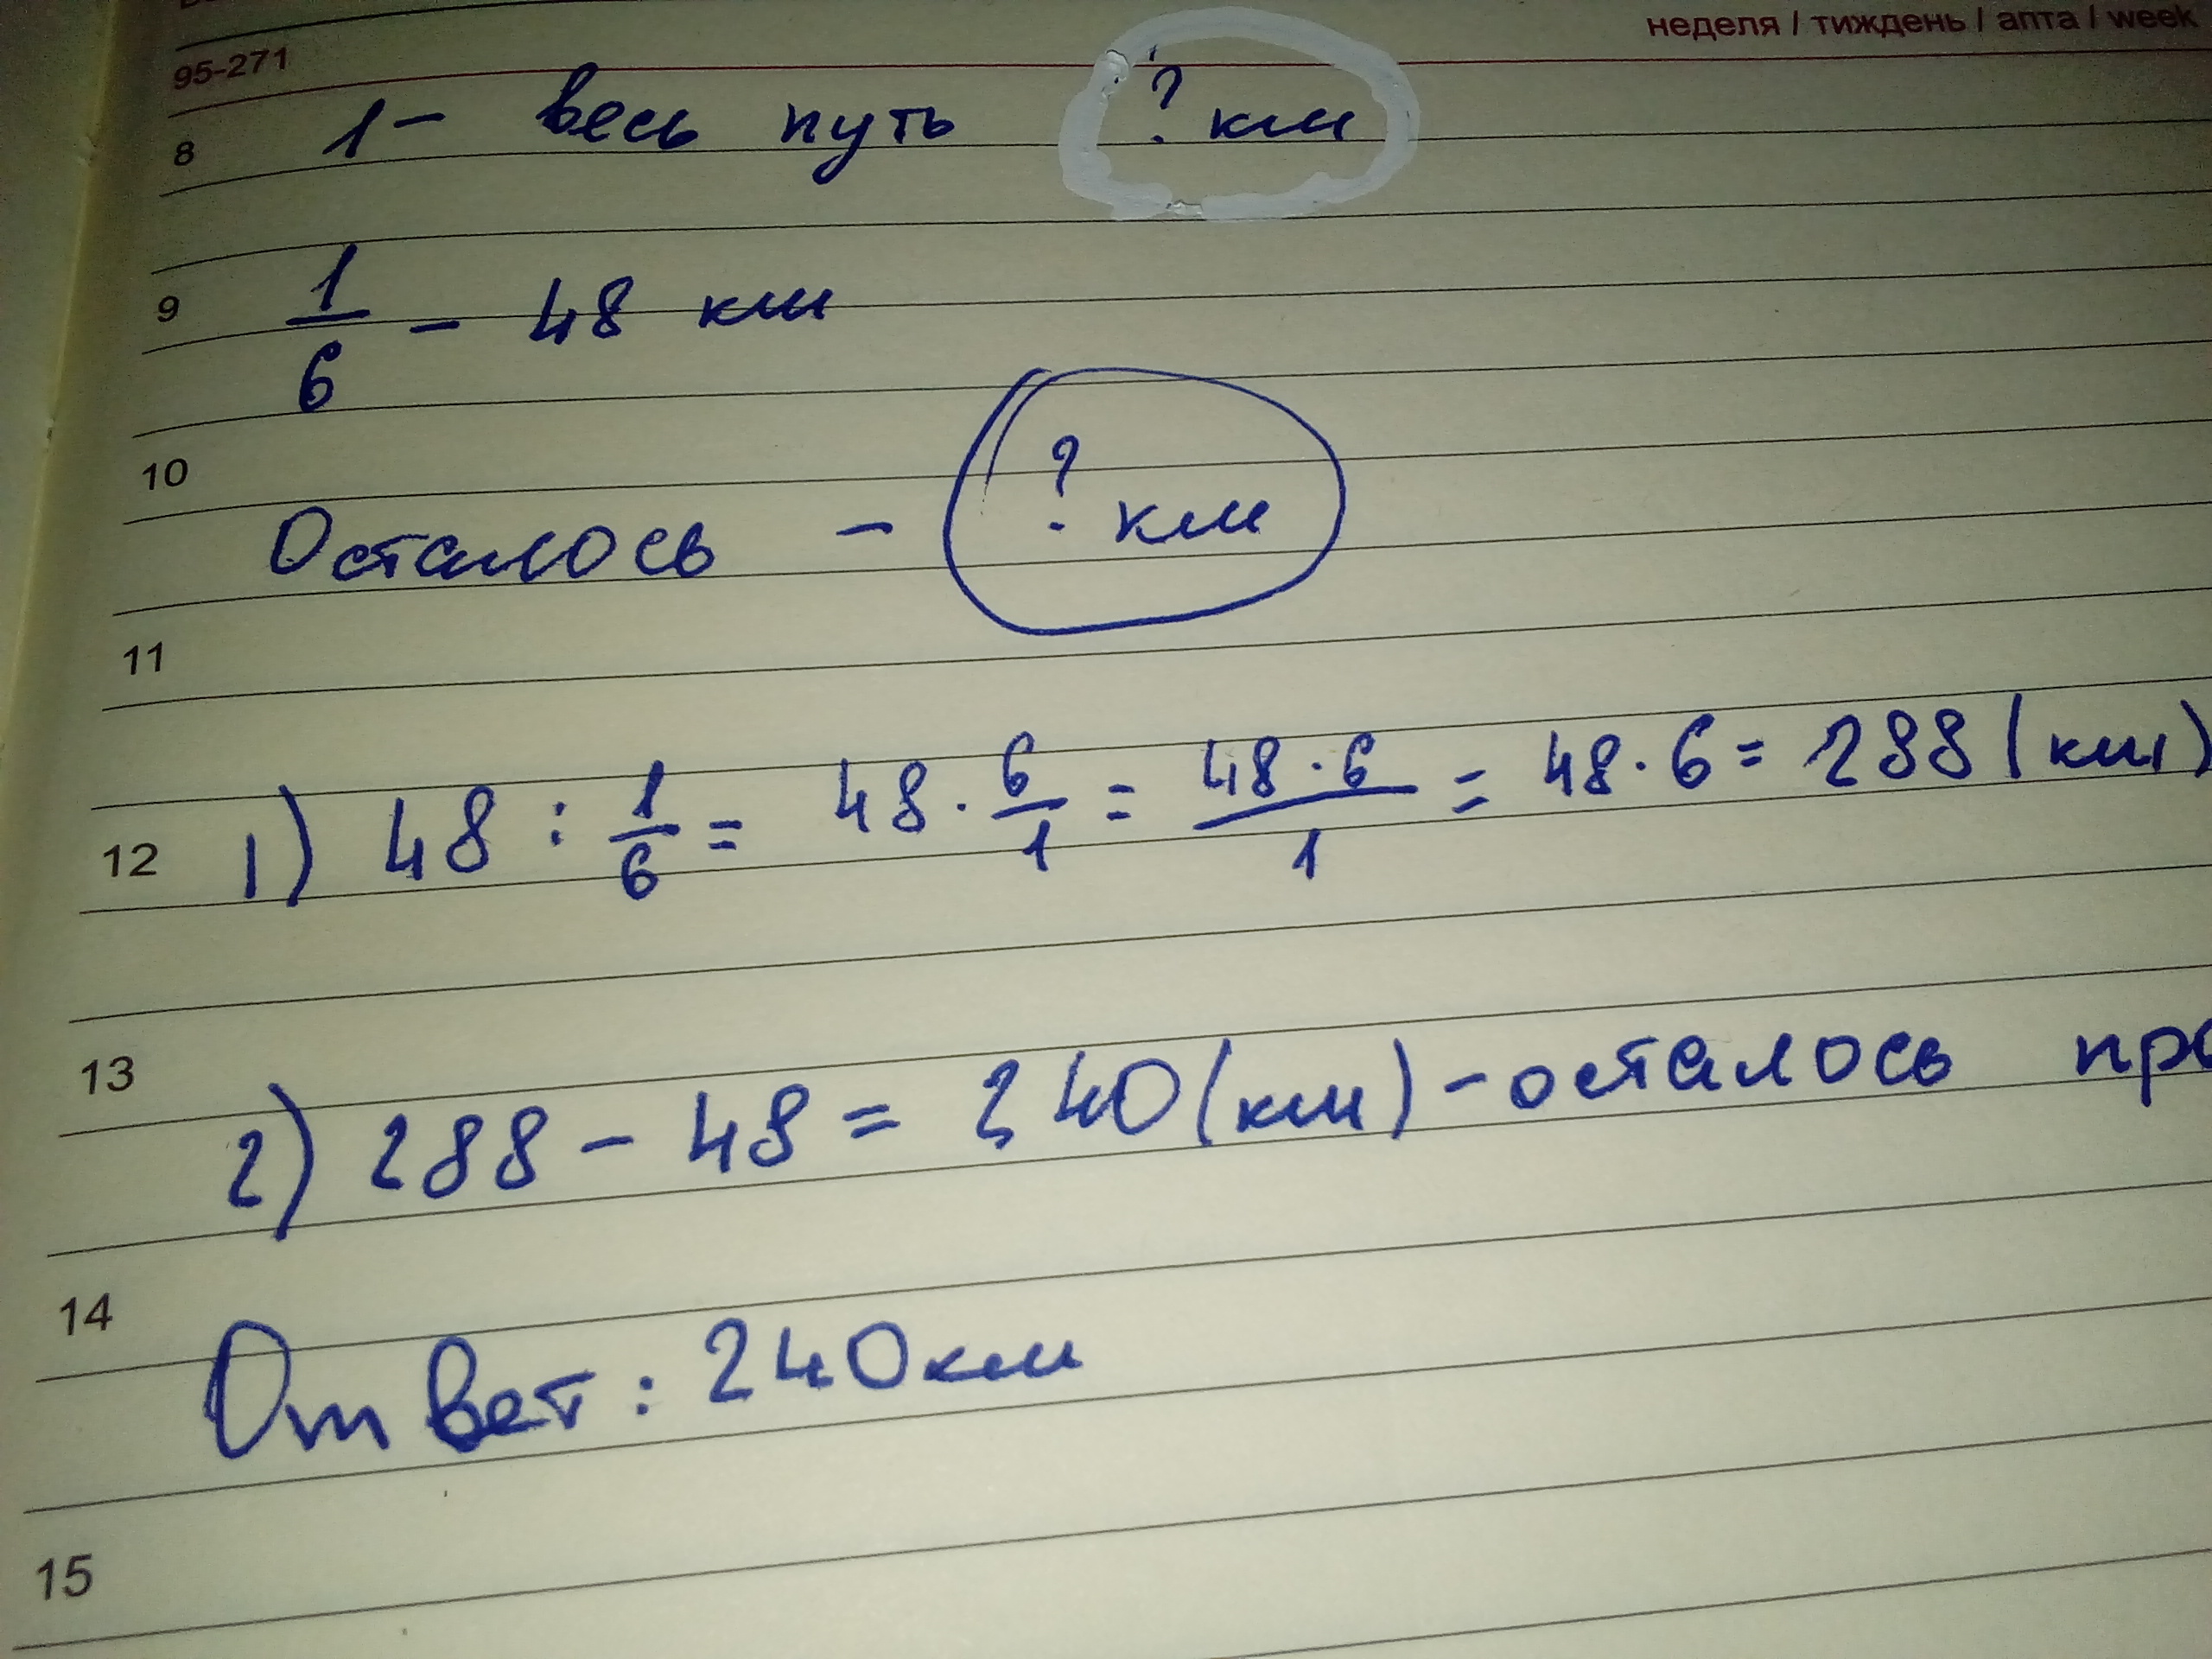 неделя / тиждень / апта / week
95-271
8 1 - весь путь ? км
9 1/6 - 48 км
10
Осталось - ? км
11
12 1) 48 : 1/6 = 48 · 6/1 = 48 · 6/1 = 48 · 6 = 288 (км)
13
2) 288 - 48 = 240 (км) - осталось про
14
Ответ: 240 км
15